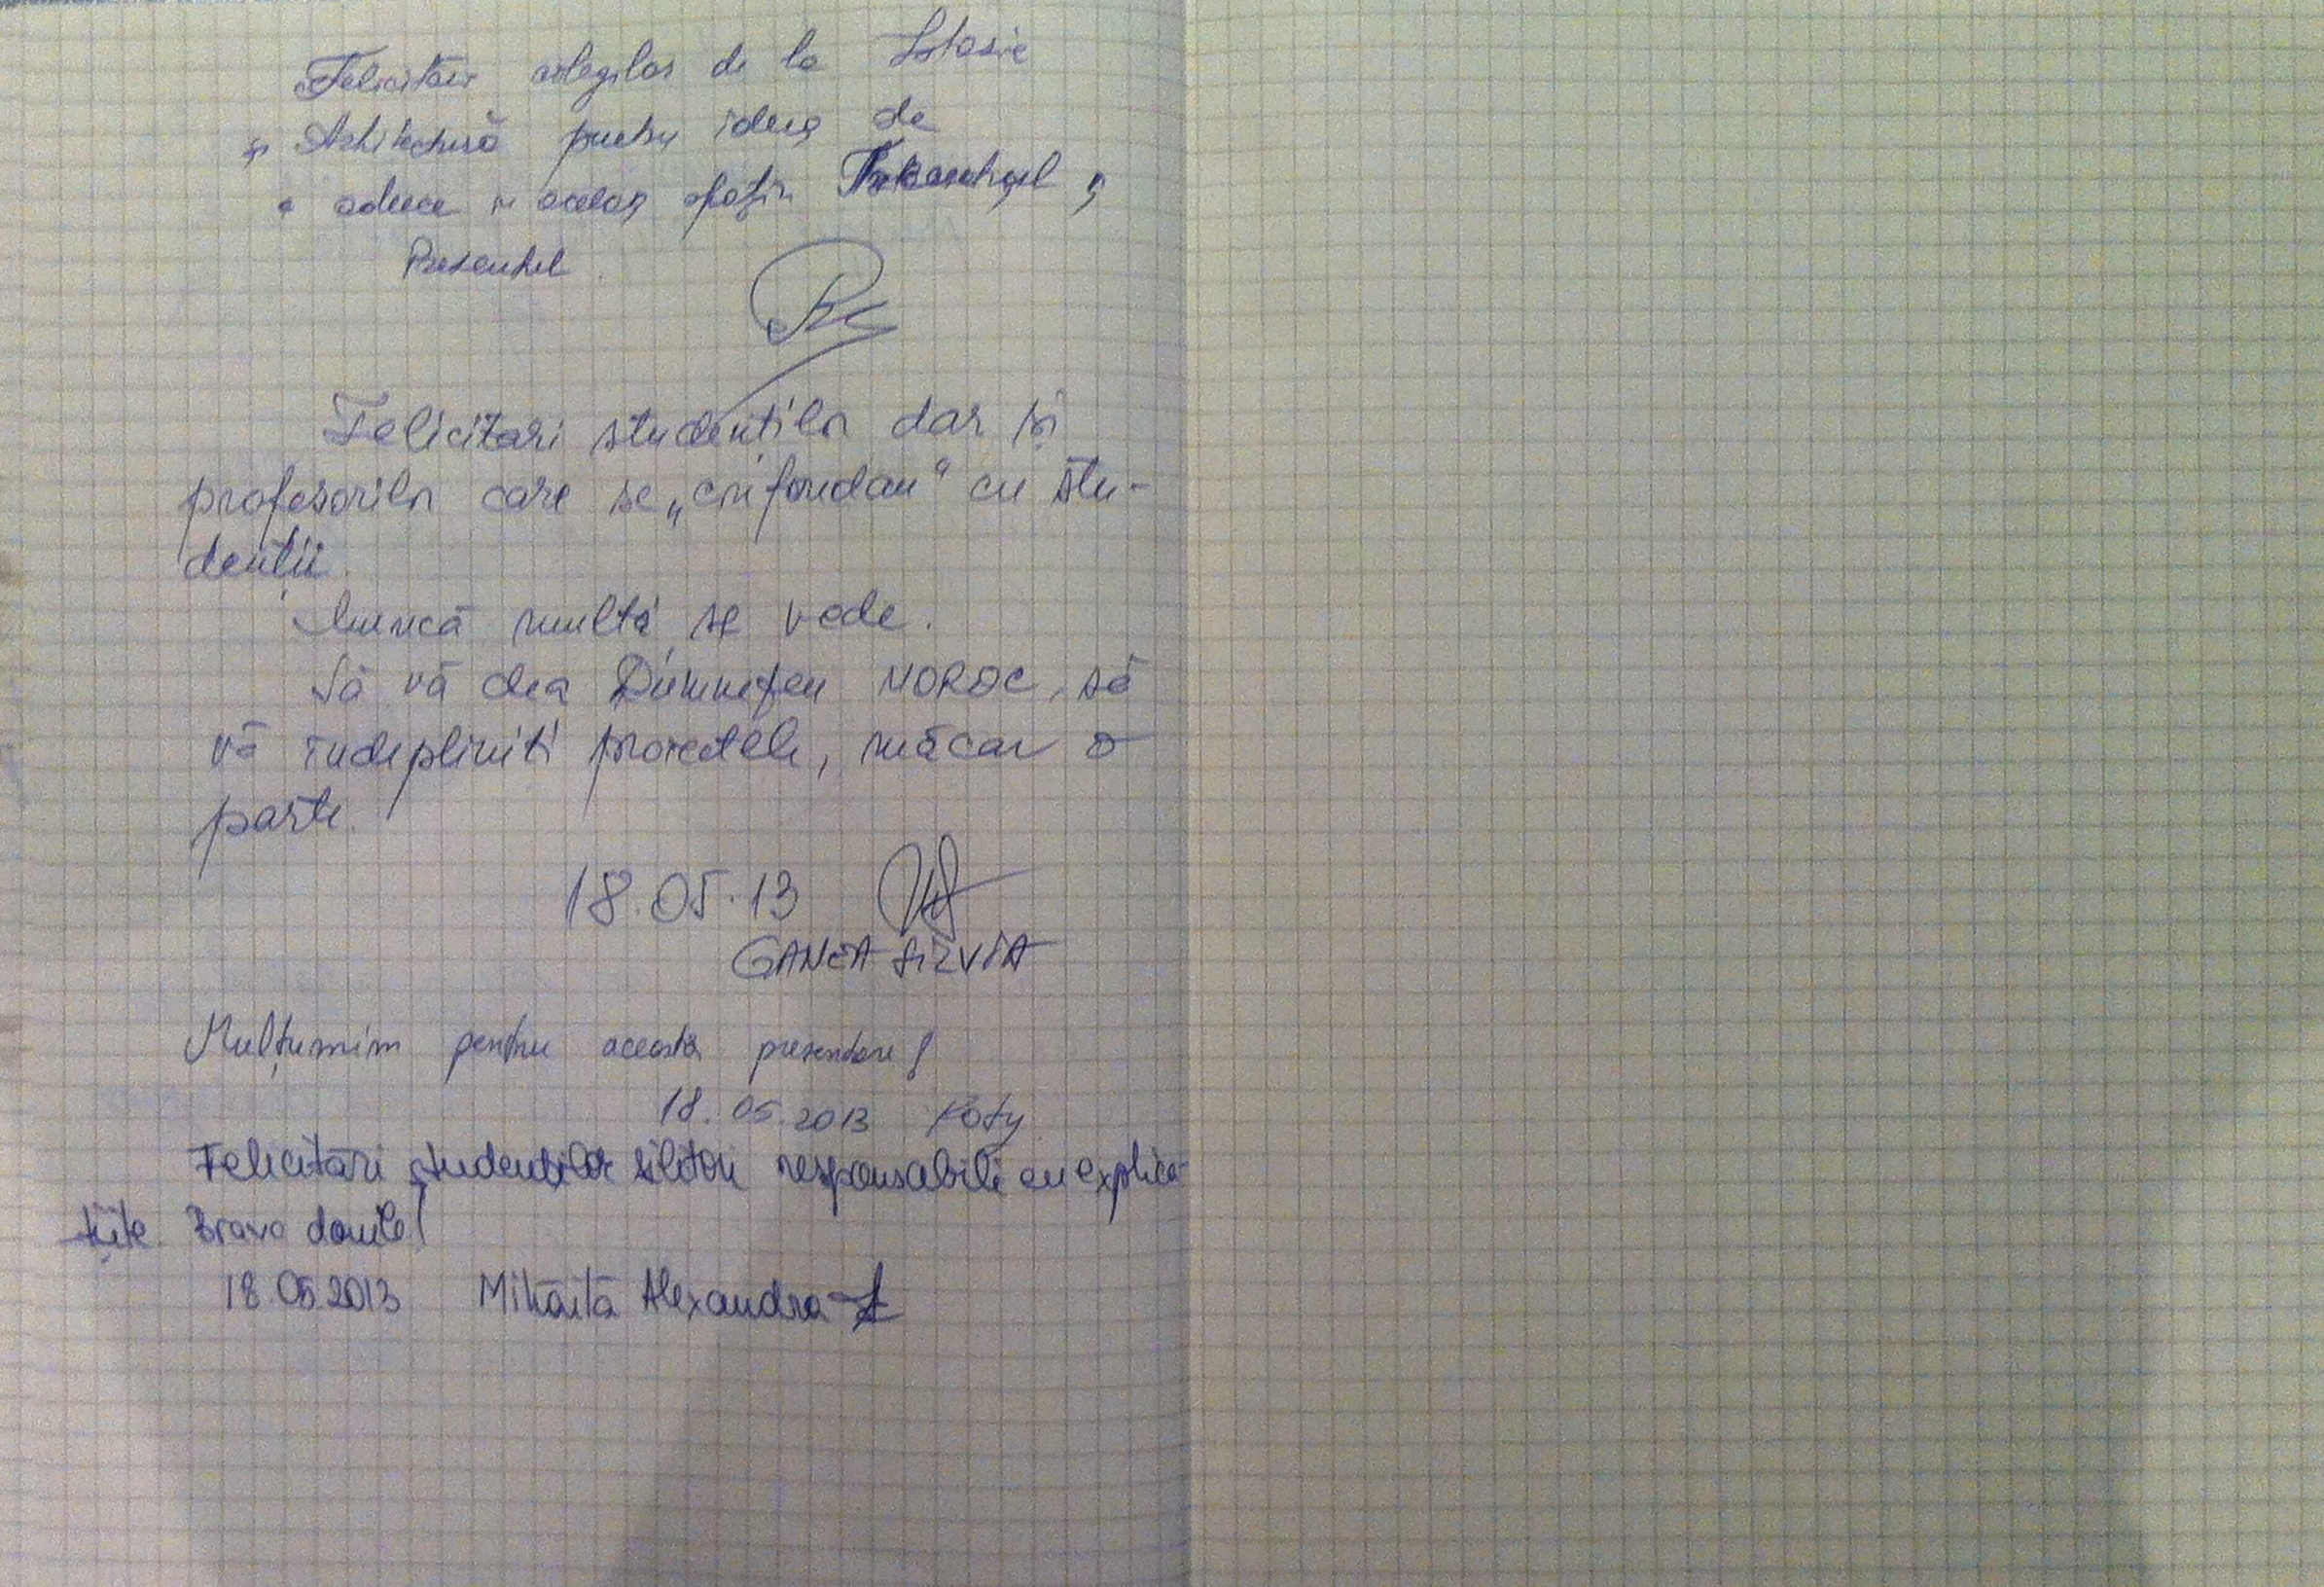 Felicitări colegilor de la Istorie
și Arhitectură pentru ideea de
a aduce în același spațiu și
Prezentul.
Felicitari studenților dar și
profesorilor care se „confundau" cu stu-
denții.
Muncă multă se vede.
Să vă dea Dumnezeu NOROC, să
vă îndepliniti proiectele, măcar o
parte.
18.05.13
GANEA SILVIA
Mulțumim pentru aceasta prezentare!
18.05.2013
Felicitări studenților silitori responsabili cu explica-
țiile Bravo
18.05.2013 Mihăită Alexandra